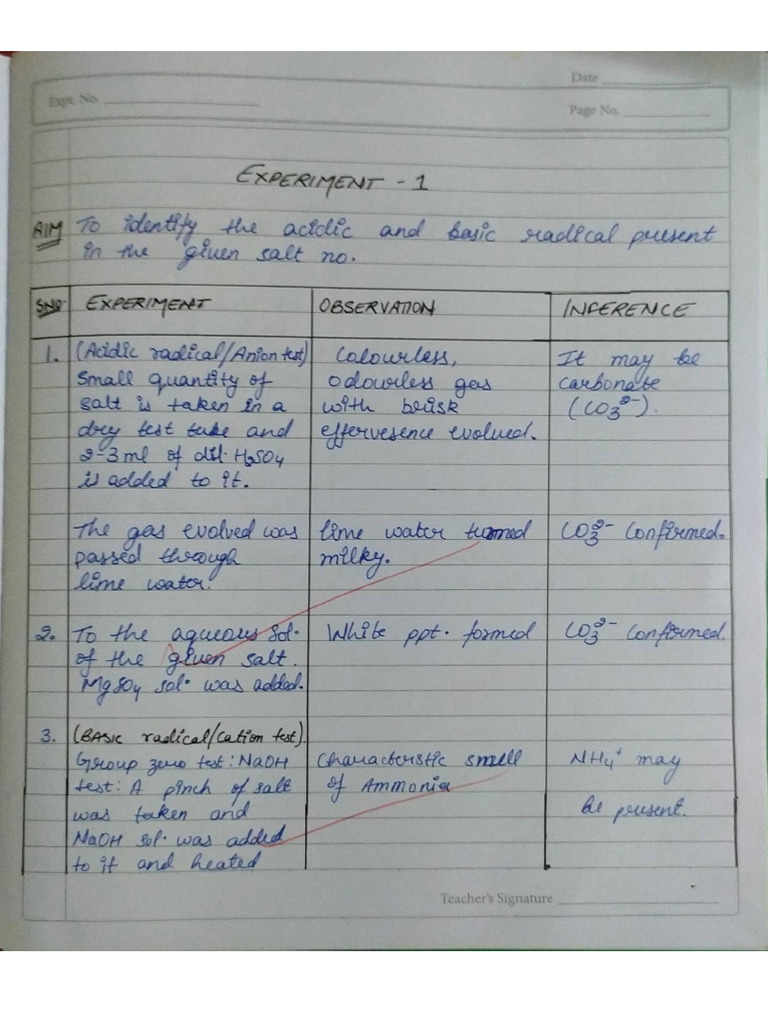 Date
Expt. No.
Page No.
EXPERIMENT - 1
AIM To identify the acidic and basic radical present
in the given salt no.
SNO. EXPERIMENT OBSERVATION INFERENCE
1. (Acidic radical/Anion test)
Small quantity of
salt is taken in a
dry test tube and
2-3 ml of dil. H₂SO₄
is added to it.
Colourless,
odourless gas
with brisk
effervesence evolved.
It may be
carbonate
(CO₃²⁻).
The gas evolved was
passed through
lime water.
lime water turned
milky.
CO₃²⁻ Confirmed.
2. To the aqueous sol.
of the given salt.
MgSO₄ sol. was added.
White ppt. formed
CO₃²⁻ Confirmed.
3. (BASIC radical/Cation test).
Group zero test: NaOH
test: A pinch of salt
was taken and
NaOH sol. was added
to it and heated
Characteristic smell
of Ammonia
NH₄⁺ may
be present.
Teacher's Signature